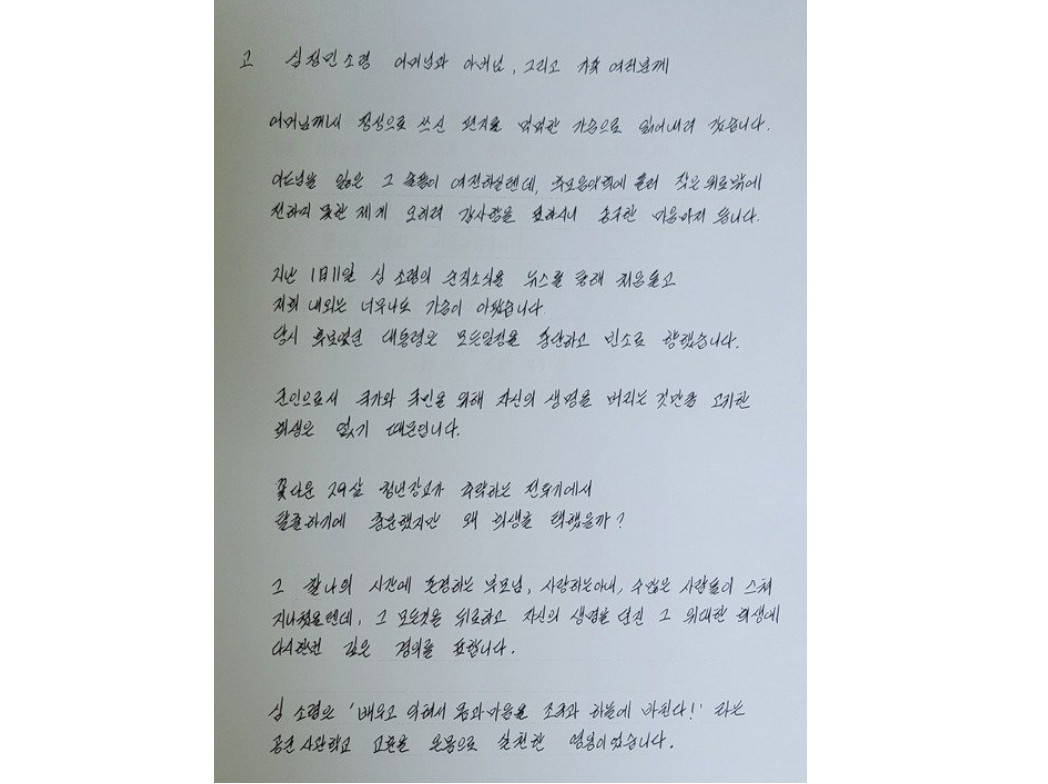 고 심정민소령 어머님과 아버님, 그리고 가족 여러분께
어머님께서 정성으로 쓰신 편지를 먹먹한 가슴으로 읽어내려 갔습니다.
아드님을 잃은 그 슬픔이 여전하실텐데, 추모음악회에 들러 작은 위로밖에
전하지 못한 제게 오히려 감사함을 표하시니 송구한 마음마저 듭니다.
지난 1월11일 심 소령의 순직소식을 뉴스를 통해 처음듣고
저희 내외는 너무나도 가슴이 아팠습니다.
당시 후보였던 대통령은 모든일정을 중단하고 빈소로 향했습니다.
군인으로서 국가와 국민을 위해 자신의 생명을 버리는 것만큼 고귀한
희생은 없기 때문입니다.
꽃다운 29살 청년장교가 추락하는 전투기에서
탈출하기에 충분했지만 왜 희생을 택했을까?
그 찰나의 시간에 존경하는 부모님, 사랑하는아내, 수많은 사람들이 스쳐
지나쳤을텐데, 그 모든것을 뒤로하고 자신의 생명을 던진 그 위대한 희생에
다시한번 깊은 경의를 표합니다.
심 소령은 '배우고 익혀서 몸과마음을 조국과 하늘에 바친다!' 라는
공군 사관학교 교훈을 온몸으로 실천한 영웅이었습니다.